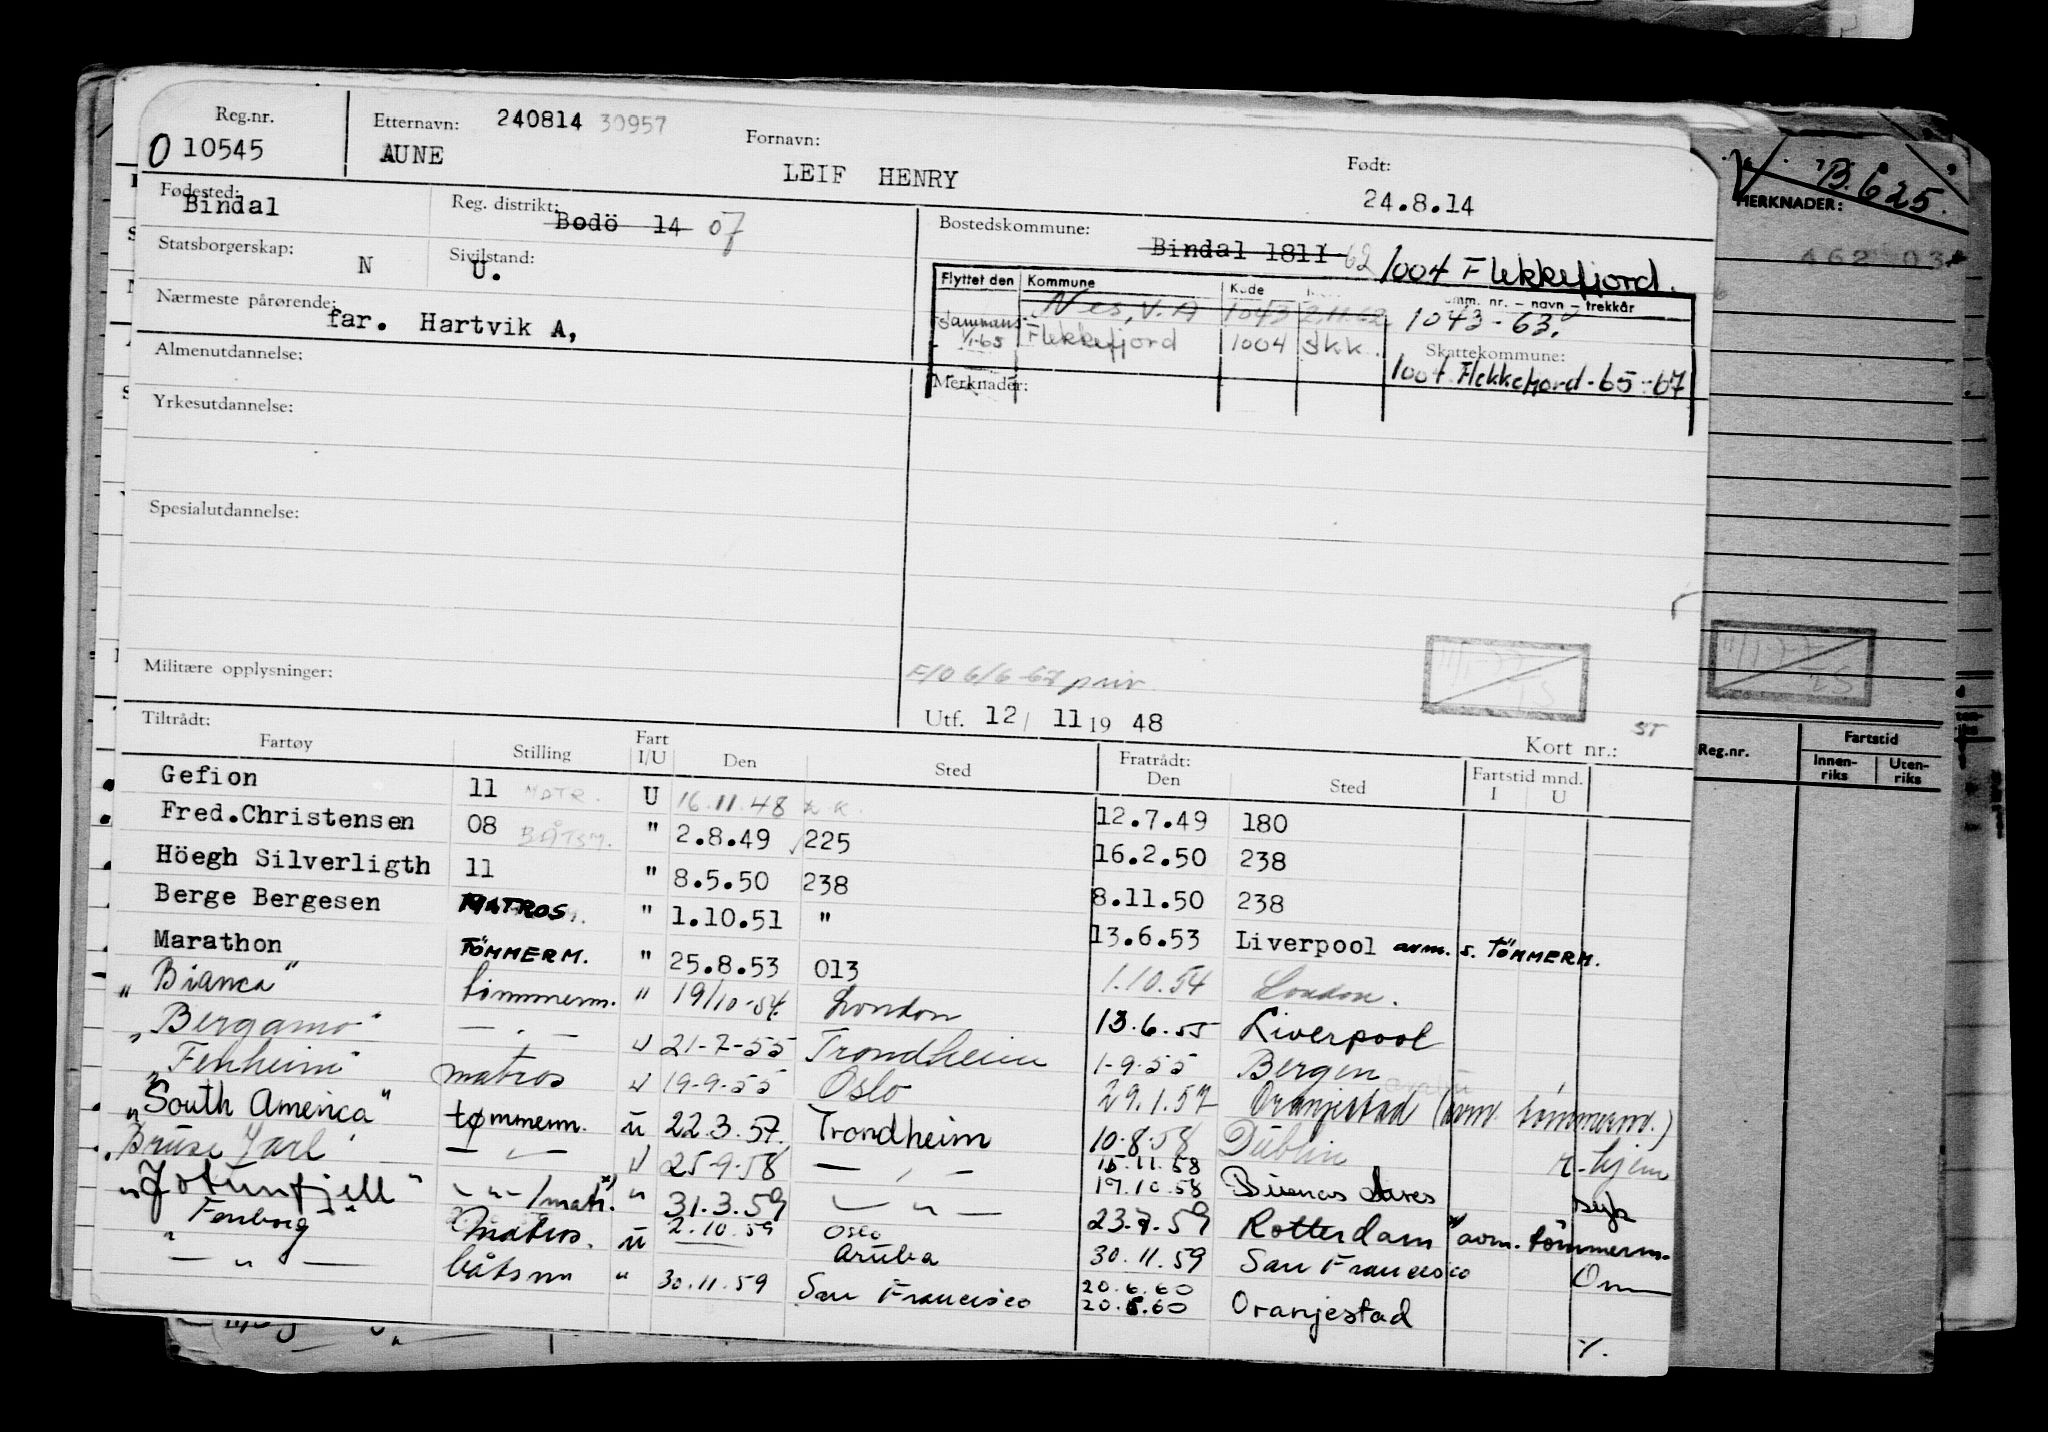 Reg.nr. Etternavn: 240814 30957 Fornavn: Født:
O 10545 AUNE LEIF HENRY 24.8.14
Fødested: Bindal Reg. distrikt: Bodö 14 07 Bostedskommune: Bindal 1811 62 1004 Flekkefjord.
Statsborgerskap: N Sivilstand: U.
Flyttet den Kommune Kode nr. – navn – trekkår
Nes, V.A 1043 2.11.62 1043 - 63.
Nærmeste pårørende: far. Hartvik A,
1/1-65 Flekkefjord 1004 skk. Skattekommune:
1004 Flekkefjord - 65 - 67
Almenutdannelse: Merknader:
Yrkesutdannelse:
Spesialutdannelse:
Militære opplysninger: F/O 6/6-67 priv.
Utf. 12/ 11 19 48 Kort nr.:
Tiltrådt: Fratrådt:
Fartøy Stilling Fart I/U Den Sted Den Sted Fartstid mnd. I U
Gefion 11 MATR. U 16.11.48 12.7.49 180
Fred.Christensen 08 BÅTSM. " 2.8.49 225 16.2.50 238
Höegh Silverligth 11 " 8.5.50 238 8.11.50 238
Berge Bergesen MATROS. " 1.10.51 " 13.6.53 Liverpool avm. s. TÖMMERM.
Marathon TÖMMERM. " 25.8.53 013 1.10.54 London.
"Bianca" tömmerm. " 19/10-54 London 13.6.55 Liverpool
"Bergamo" — " — U 21-7-55 Trondheim 1-9-55 Bergen
"Fenheim" matros U 19-9-55 Oslo 29.1.57 Oranjestad (avm tömmerm.)
"South America" tømmerm. U 22.3.57. Trondheim 10.8.58 Dublin r-hjem
"Bruse Jarl" — " — U 25-9-58 — " — 15.11.58
17.10.58 Buenos Aires syk
"Jotunfjell" — " — /matr. x) " 31.3.59 — " — 23.7.59 Rotterdam x) avm. tömmerm.
"Fenborg" Matros. U 2.10.59 Oslo Aruba 30.11.59 San Francisco Om
— " — båtsm " 30.11.59 San Francisco 20.6.60
20.5.60 Oranjestad
B.625.
MERKNADER:
Reg.nr. Fartstid
Innenriks Utenriks